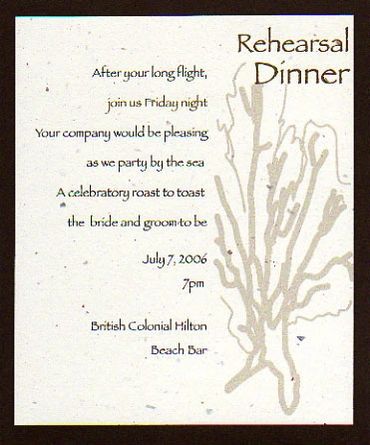 Rehearsal
Dinner
After your long flight,
join us Friday night
Your company would be pleasing
as we party by the sea
A celebratory roast to toast
the bride and groom-to be
July 7, 2006
7pm
British Colonial Hilton
Beach Bar